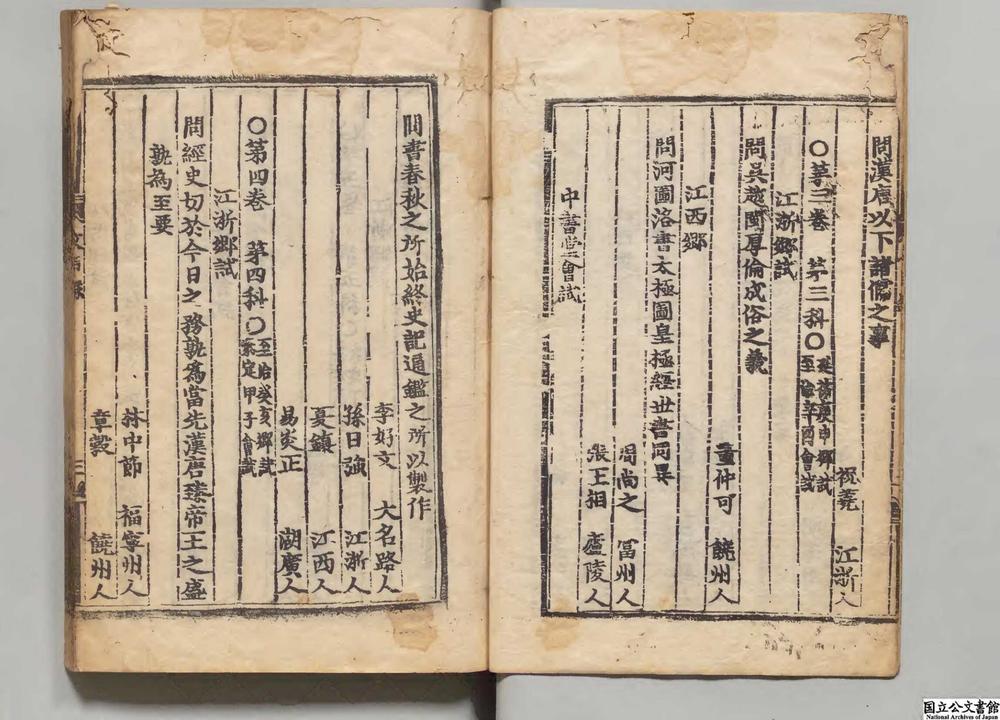 問漢唐以下諸儒之事
祝堯 江浙人
○第三卷 第三科○延祐庚申鄉試
至治辛酉會試
江浙鄉試
問吳越閩厚倫成俗之義
董仲可 饒州人
江西鄉
問河圖洛書太極圖皇極經世書同異
周尚之 冨州人
張王相 廬陵人
中書堂會試
問書春秋之所始終史記通鑑之所以製作
李好文 大名路人
孫日強 江浙人
夏鎮 江西人
易炎正 湖廣人
○第四卷 第四科○至治癸亥鄉試
泰定甲子會試
江浙鄉試
問經史切於今日之務孰爲當先漢唐臻帝王之盛
孰為至要
林中節 福寧州人
章瑴 饒州人
国立公文書館
National Archives of Japan